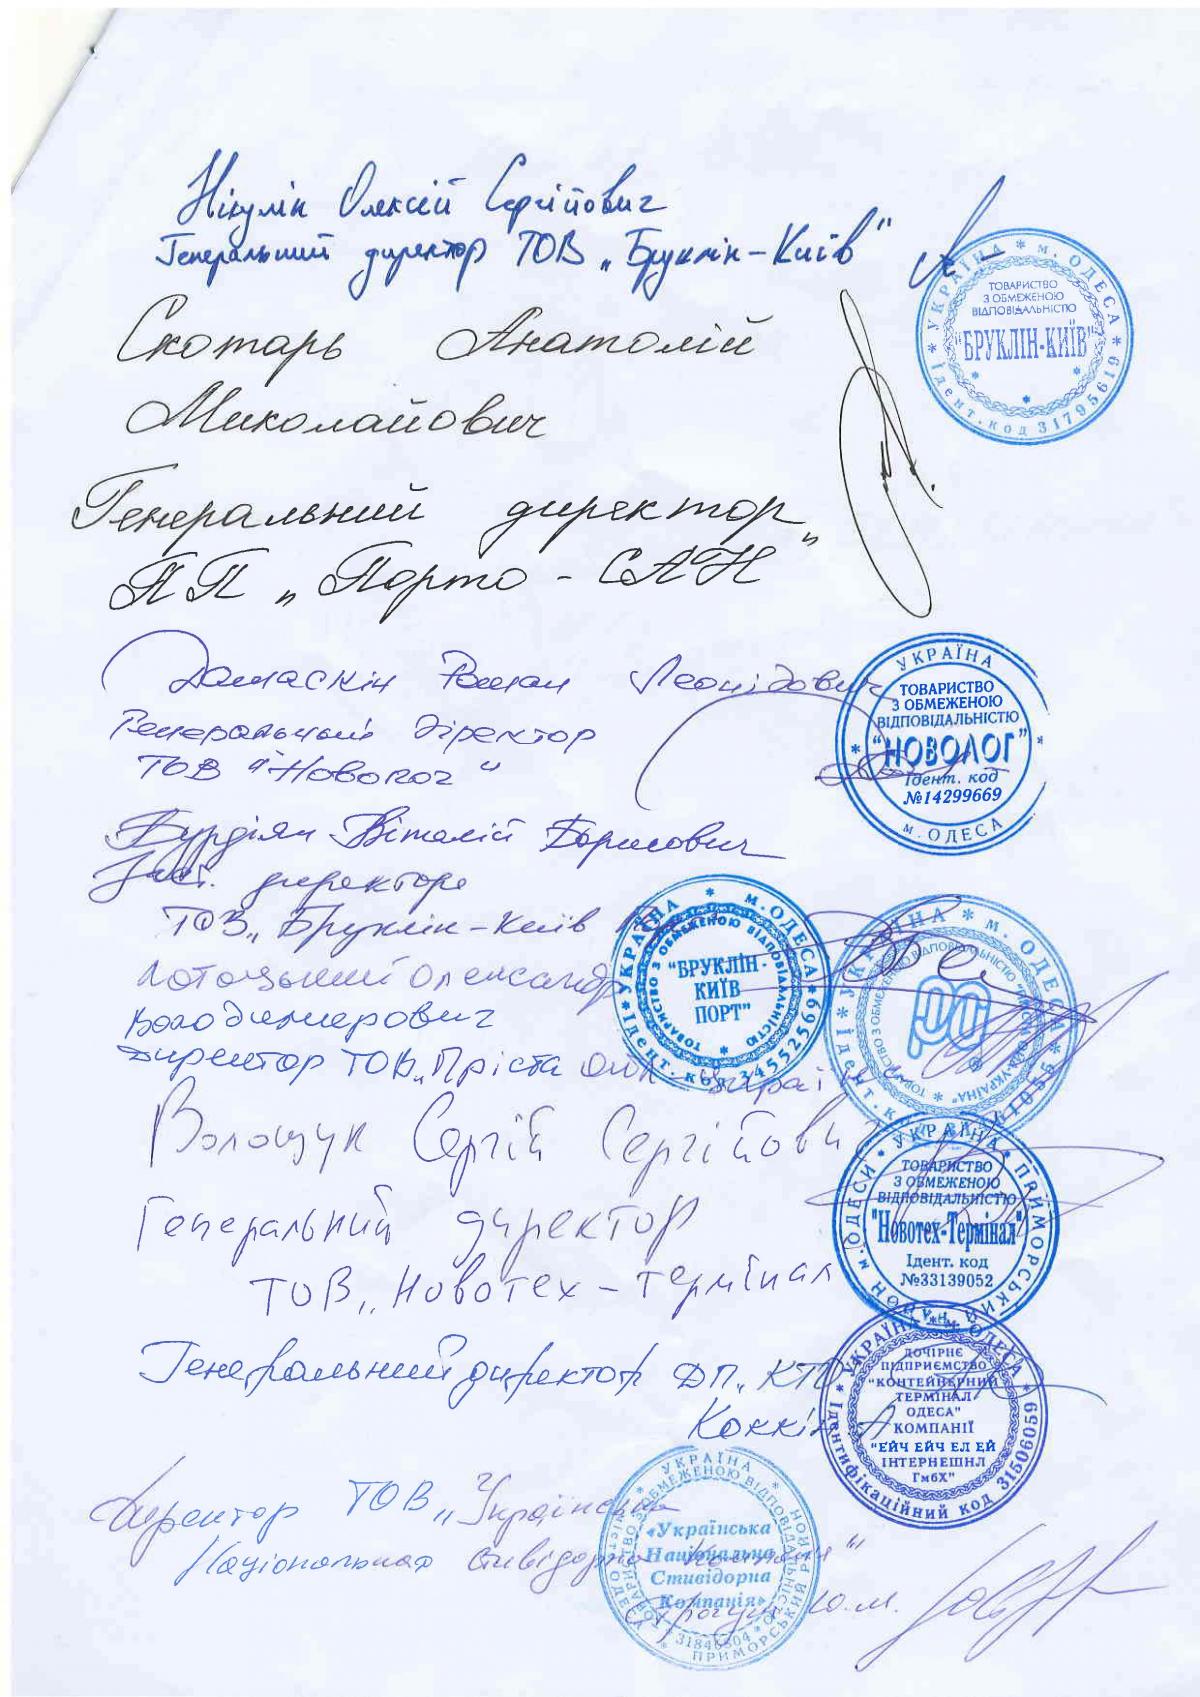 Нікулін Олексій Сергійович
Генеральний директор ТОВ „Бруклін-Київ"
УКРАЇНА * м. ОДЕСА * Ідент. код 31795619
ТОВАРИСТВО
З ОБМЕЖЕНОЮ
ВІДПОВІДАЛЬНІСТЮ
"БРУКЛІН-КИЇВ"
Скотарь Анатолій
Миколайович
Генеральний директор
ПП „Порто - САН"
Дамаскін Роман Леонідович
Генеральний діректор
ТОВ "Новолог"
УКРАЇНА
ТОВАРИСТВО
З ОБМЕЖЕНОЮ
ВІДПОВІДАЛЬНІСТЮ
"НОВОЛОГ"
Ідент. код
№14299669
м. ОДЕСА
Бурдіян Віталій Борисович
Заст. директора
ТОВ „Бруклін-Київ
УКРАЇНА * м. ОДЕСА * Ідент. код 34552569
ТОВАРИСТВО З ОБМЕЖЕНОЮ ВІДПОВІДАЛЬНІСТЮ
"БРУКЛІН-
КИЇВ
ПОРТ"
Потоцький Олександр
Володимирович
Директор ТОВ „Пріста Ойл
УКРАЇНА * м. ОДЕСА
ТОВАРИСТВО З ОБМЕЖЕНОЮ ВІДПОВІДАЛЬНІСТЮ
Волощук Сергій Сергійович
Генеральний директор
ТОВ „Новотех-термінал
УКРАЇНА * ПРИМОРСЬКИЙ РАЙОН м. ОДЕСИ
ТОВАРИСТВО
З ОБМЕЖЕНОЮ
ВІДПОВІДАЛЬНІСТЮ
"Новотех-Термінал"
Ідент. код
№33139052
Генеральний директор ДП „КТО
Коккін А
УКРАЇНА * м. ОДЕСА * Ідентифікаційний код 31506059
ДОЧІРНЄ
ПІДПРИЄМСТВО
"КОНТЕЙНЕРНИЙ
ТЕРМІНАЛ
ОДЕСА"
КОМПАНІЇ
"ЕЙЧ ЕЙЧ ЕЛ ЕЙ
ІНТЕРНЕШНЛ
ГмбХ"
Директор ТОВ „Українська
Національна стивідорна компанія"
Ю.М.
УКРАЇНА
ПРИМОРСЬКИЙ РАЙОН
ТОВАРИСТВО З ОБМЕЖЕНОЮ ВІДПОВІДАЛЬНІСТЮ
«Українська
Національна
Стивідорна
Компанія»